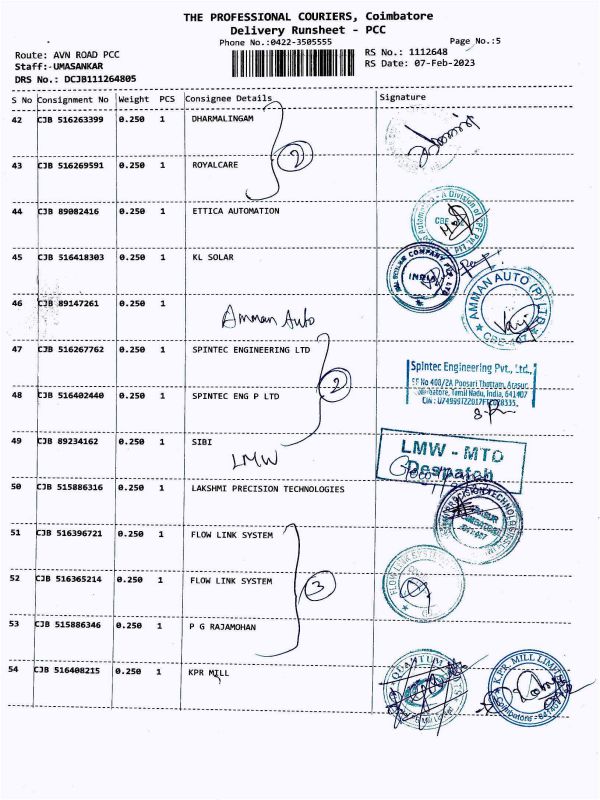 THE PROFESSIONAL COURIERS, Coimbatore
Delivery Runsheet - PCC
Phone No.:0422-3505555
Page No.:5
Route: AVN ROAD PCC
RS No.: 1112648
Staff:-UMASANKAR
RS Date: 07-Feb-2023
DRS No.: DCJB111264805
S No Consignment No Weight PCS Consignee Details Signature
42 CJB 516263399 0.250 1 DHARMALINGAM
2
43 CJB 516269591 0.250 1 ROYALCARE
44 CJB 89082416 0.250 1 ETTICA AUTOMATION
45 CJB 516418303 0.250 1 KL SOLAR
INDIA
46 CJB 89147261 0.250 1
Amman Auto
AMMAN AUTO (P) LTD
CBE-407
47 CJB 516267762 0.250 1 SPINTEC ENGINEERING LTD
2
Spintec Engineering Pvt., Ltd.,
SF No 408/2A Poosari Thottam, Arasur,
Coimbatore, Tamil Nadu, India, 641407
48 CJB 516402440 0.250 1 SPINTEC ENG P LTD
49 CJB 89234162 0.250 1 SIBI
LMW
LMW - MTO
Despatch
50 CJB 515886316 0.250 1 LAKSHMI PRECISION TECHNOLOGIES
51 CJB 516396721 0.250 1 FLOW LINK SYSTEM
52 CJB 516365214 0.250 1 FLOW LINK SYSTEM
3
53 CJB 515886346 0.250 1 P G RAJAMOHAN
54 CJB 516408215 0.250 1 KPR MILL
QUANTUM
KPR MILL LIMITED